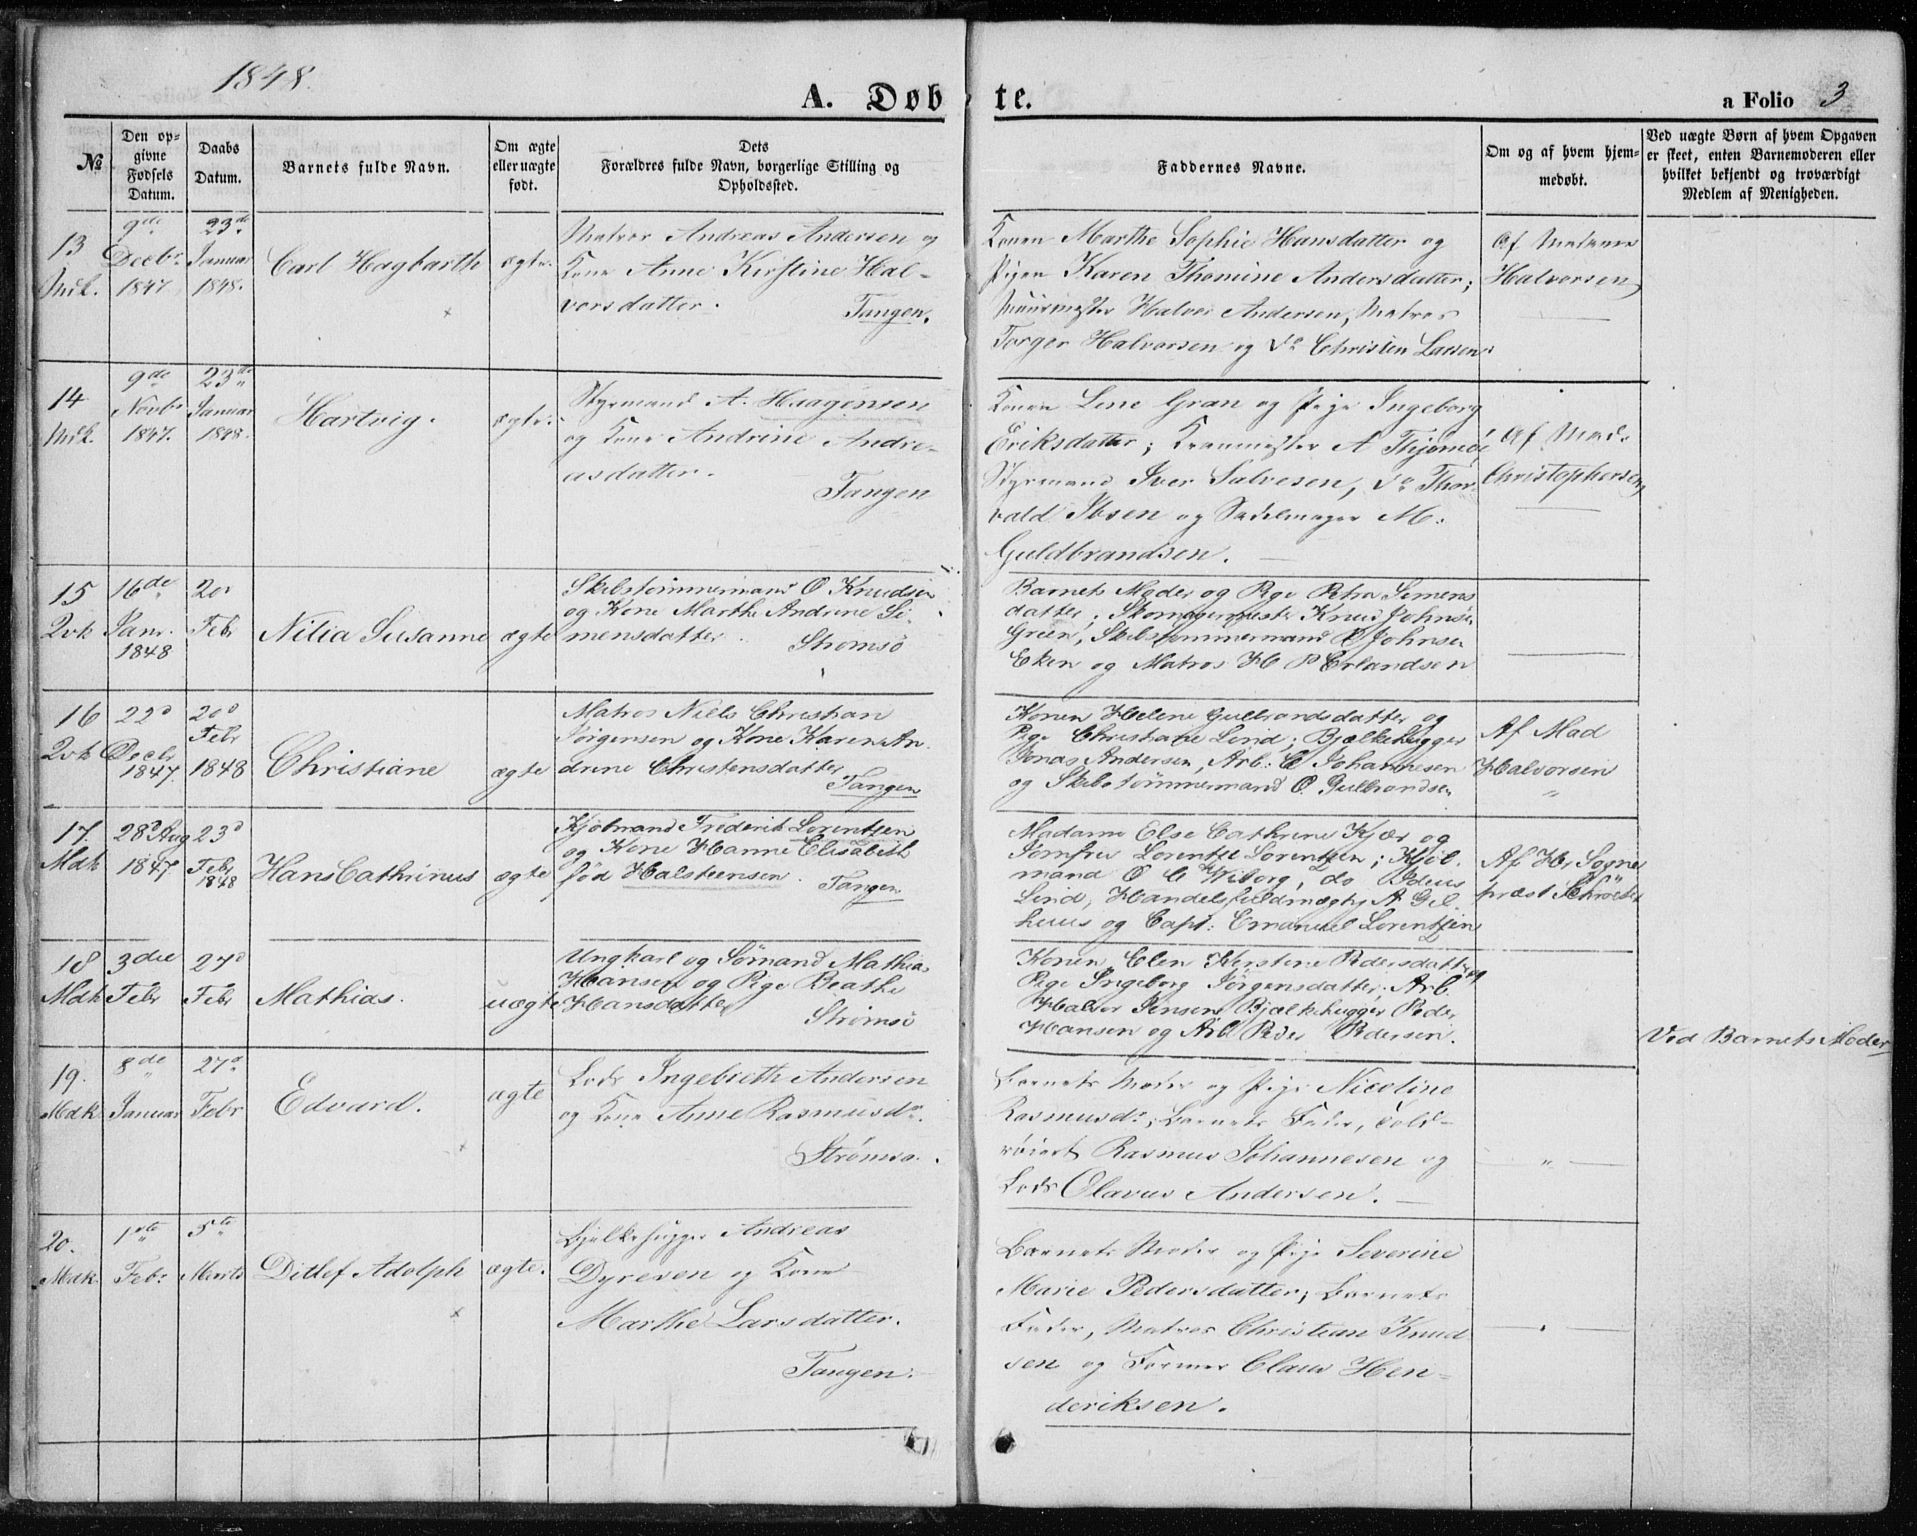 1848.
A. Døbte.
a Folio 3
No
Den opgivne Fødsels Datum.
Daabs Datum.
Barnets fulde Navn.
Om ægte eller uægte født.
Dets
Forældres fulde Navn, borgerlige Stilling og
Opholdssted.
Faddernes Navne.
Om og af hvem hjemmedøbt.
Ved uægte Børn af hvem Opgaven
er skeet, enten Barnemoderen eller
hvilket bekjendt og troværdigt
Medlem af Menigheden.
13
9de Decbr 1847
23de Januar 1848.
Carl Hagbarth
ægte.
Matros Andreas Andersen og
Kone Anne Kirstine Hal-
vorsdatter.
Tangen.
Konen Marthe Sophie Hansdatter og
Pigen Karen Thomine Andersdatter;
Muurmester Halvor Andersen, Matros
Torger Halvorsen og Do Christen Larsen.
Af Matrone
Halvorsen
14
9de Novbr 1847.
23de Januar 1848.
Hartvig.
ægte.
Styrmand A. Haagensen
og Kone Andrine Andre-
asdatter.
Tangen
Konen Line Gran og Pige Ingeborg
Eriksdatter; A Thjømøe
Styrmand Iver Salvesen, Do Thor-
vald Ibsen og Sadelmager M.
Guldbrandsen.
Af Mad.
Christophersen
15
16de Janr. 1848
20 Febr
Nilia Susanne
ægte
Skibstømmermand O Knudsen
og Kone Marthe Andrine Si-
mensdatter
Strømsø
Barnets Moder og Pige Petra Simens
datter; Skomagermester Knud Johnsen
Green, Skibstømmermand O Johnsen
Eken og Matros H P Erlandsen
16
22d Decbr 1847
20d Febr 1848
Christiane
ægte
Matros Niels Christian
Jørgensen og Kone Karen An-
drine Christensdatter
Tangen
Konen Helene Gulbrandsdatter og
Pige Christiane Lind; Bjælkehugger
Jonas Andersen, Arb: C Johannesen
og Skibstømmermand O. Gulbrandsen
Af Mad
Halvorsen
17.
Mdk
28d Aug 1847
23d Febr 1848
Hans Cathrinus
ægte
Kjøbmand Frederik Lorentzen
og Kone Hanne Elisabeth
fød Halsteensen.
Tangen
Madame Else Cathrine Kjær og
Jomfru Lorentze Lorentzen; Kjøb-
mand O C Wiborg, do
Lind, Handelsfuldmægtig A Gul-
huus og Capt: Emanuel Lorentzen
Af Hr Sogne
præst Schrøeter
18
Mdk
3die Febr
27d Febr
Mathias.
uægte
Ungkarl og Sømand Mathias
Hansen og Pige Beathe
Hansdatter
Strømsø
Konen Elen Kirstine Pedersdatter og
Pige Ingeborg Jørgensdatter; Arb.
Halvor Jensen, Bjælkehugger Peder
Hansen og Arb Peder Pedersen.
Ved Barnets Moder
19.
Mdk
8de Januar
27d Febr
Edvard.
ægte
Lods Ingebreth Andersen
og Kone Anne Rasmusdr.
Strømsø.
Barnets Moder og Pige Nicoline
Rasmusdr; Barnets Fader, Told-
roiert Rasmus Johannesen og
Lods Olavus Andersen.
20.
Mdk
1ste Febr
5te Marts
Ditlef Adolph
ægte.
Bjelkehugger Andreas
Dyresen og Kone
Marthe Larsdatter.
Tangen.
Barnets Moder og Pige Severine
Marie Pedersdatter; Barnets
Fader, Matros Christian Knud-
sen og Former Claus Hen-
deriksen.